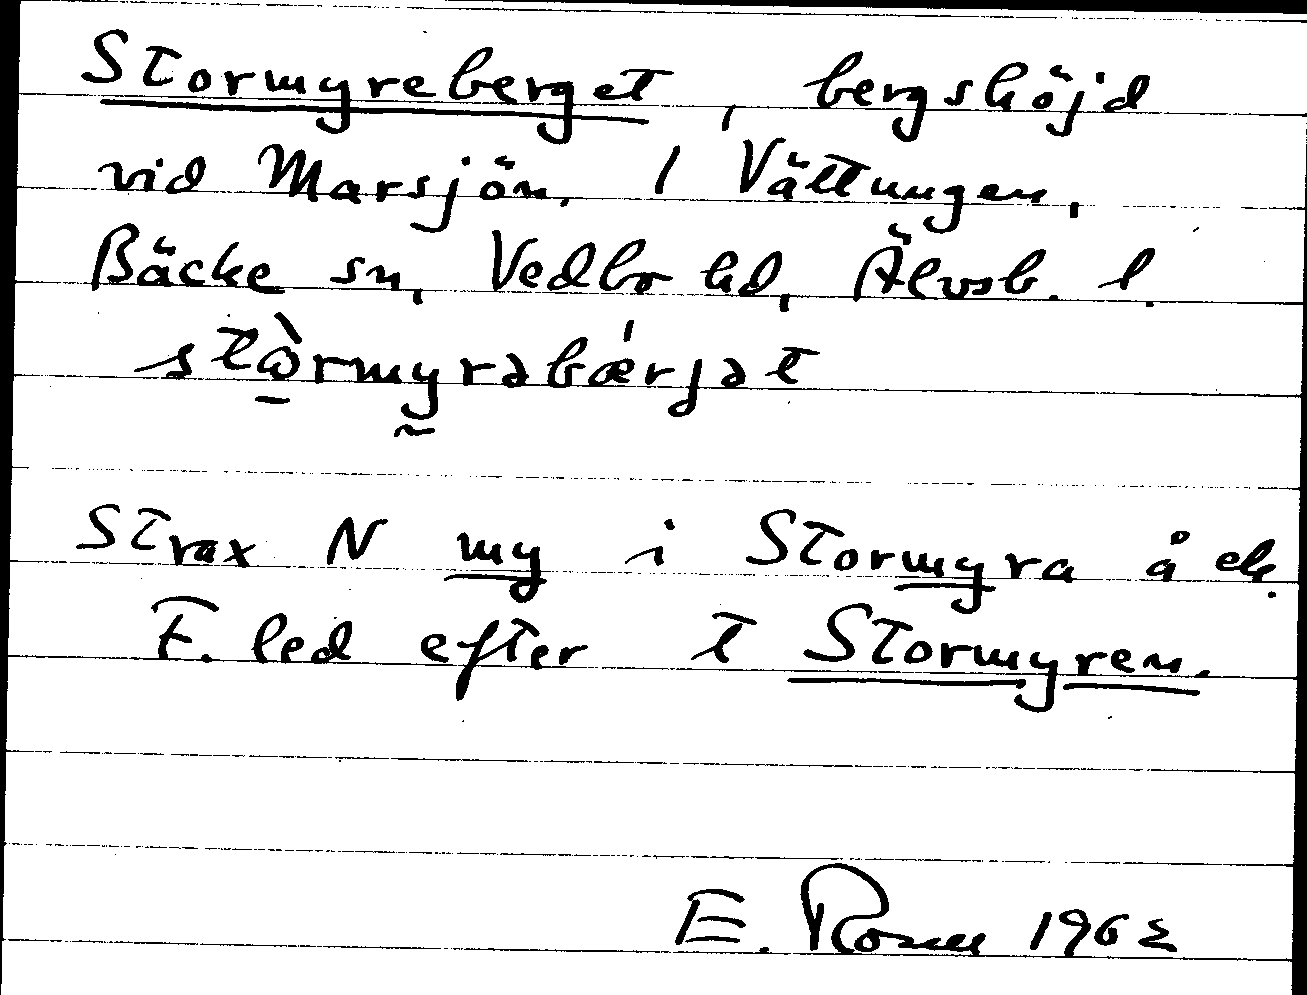 Stormyreberget, bergshöjd
vid Marsjön. / Vättungen,
Bäcke sn, Vedbo hd, Älvsb. l.
stòrmyrəbǽrjət
Strax N my i Stormyra å ek.
F. led efter t Stormyren.
E. Rosell 1962